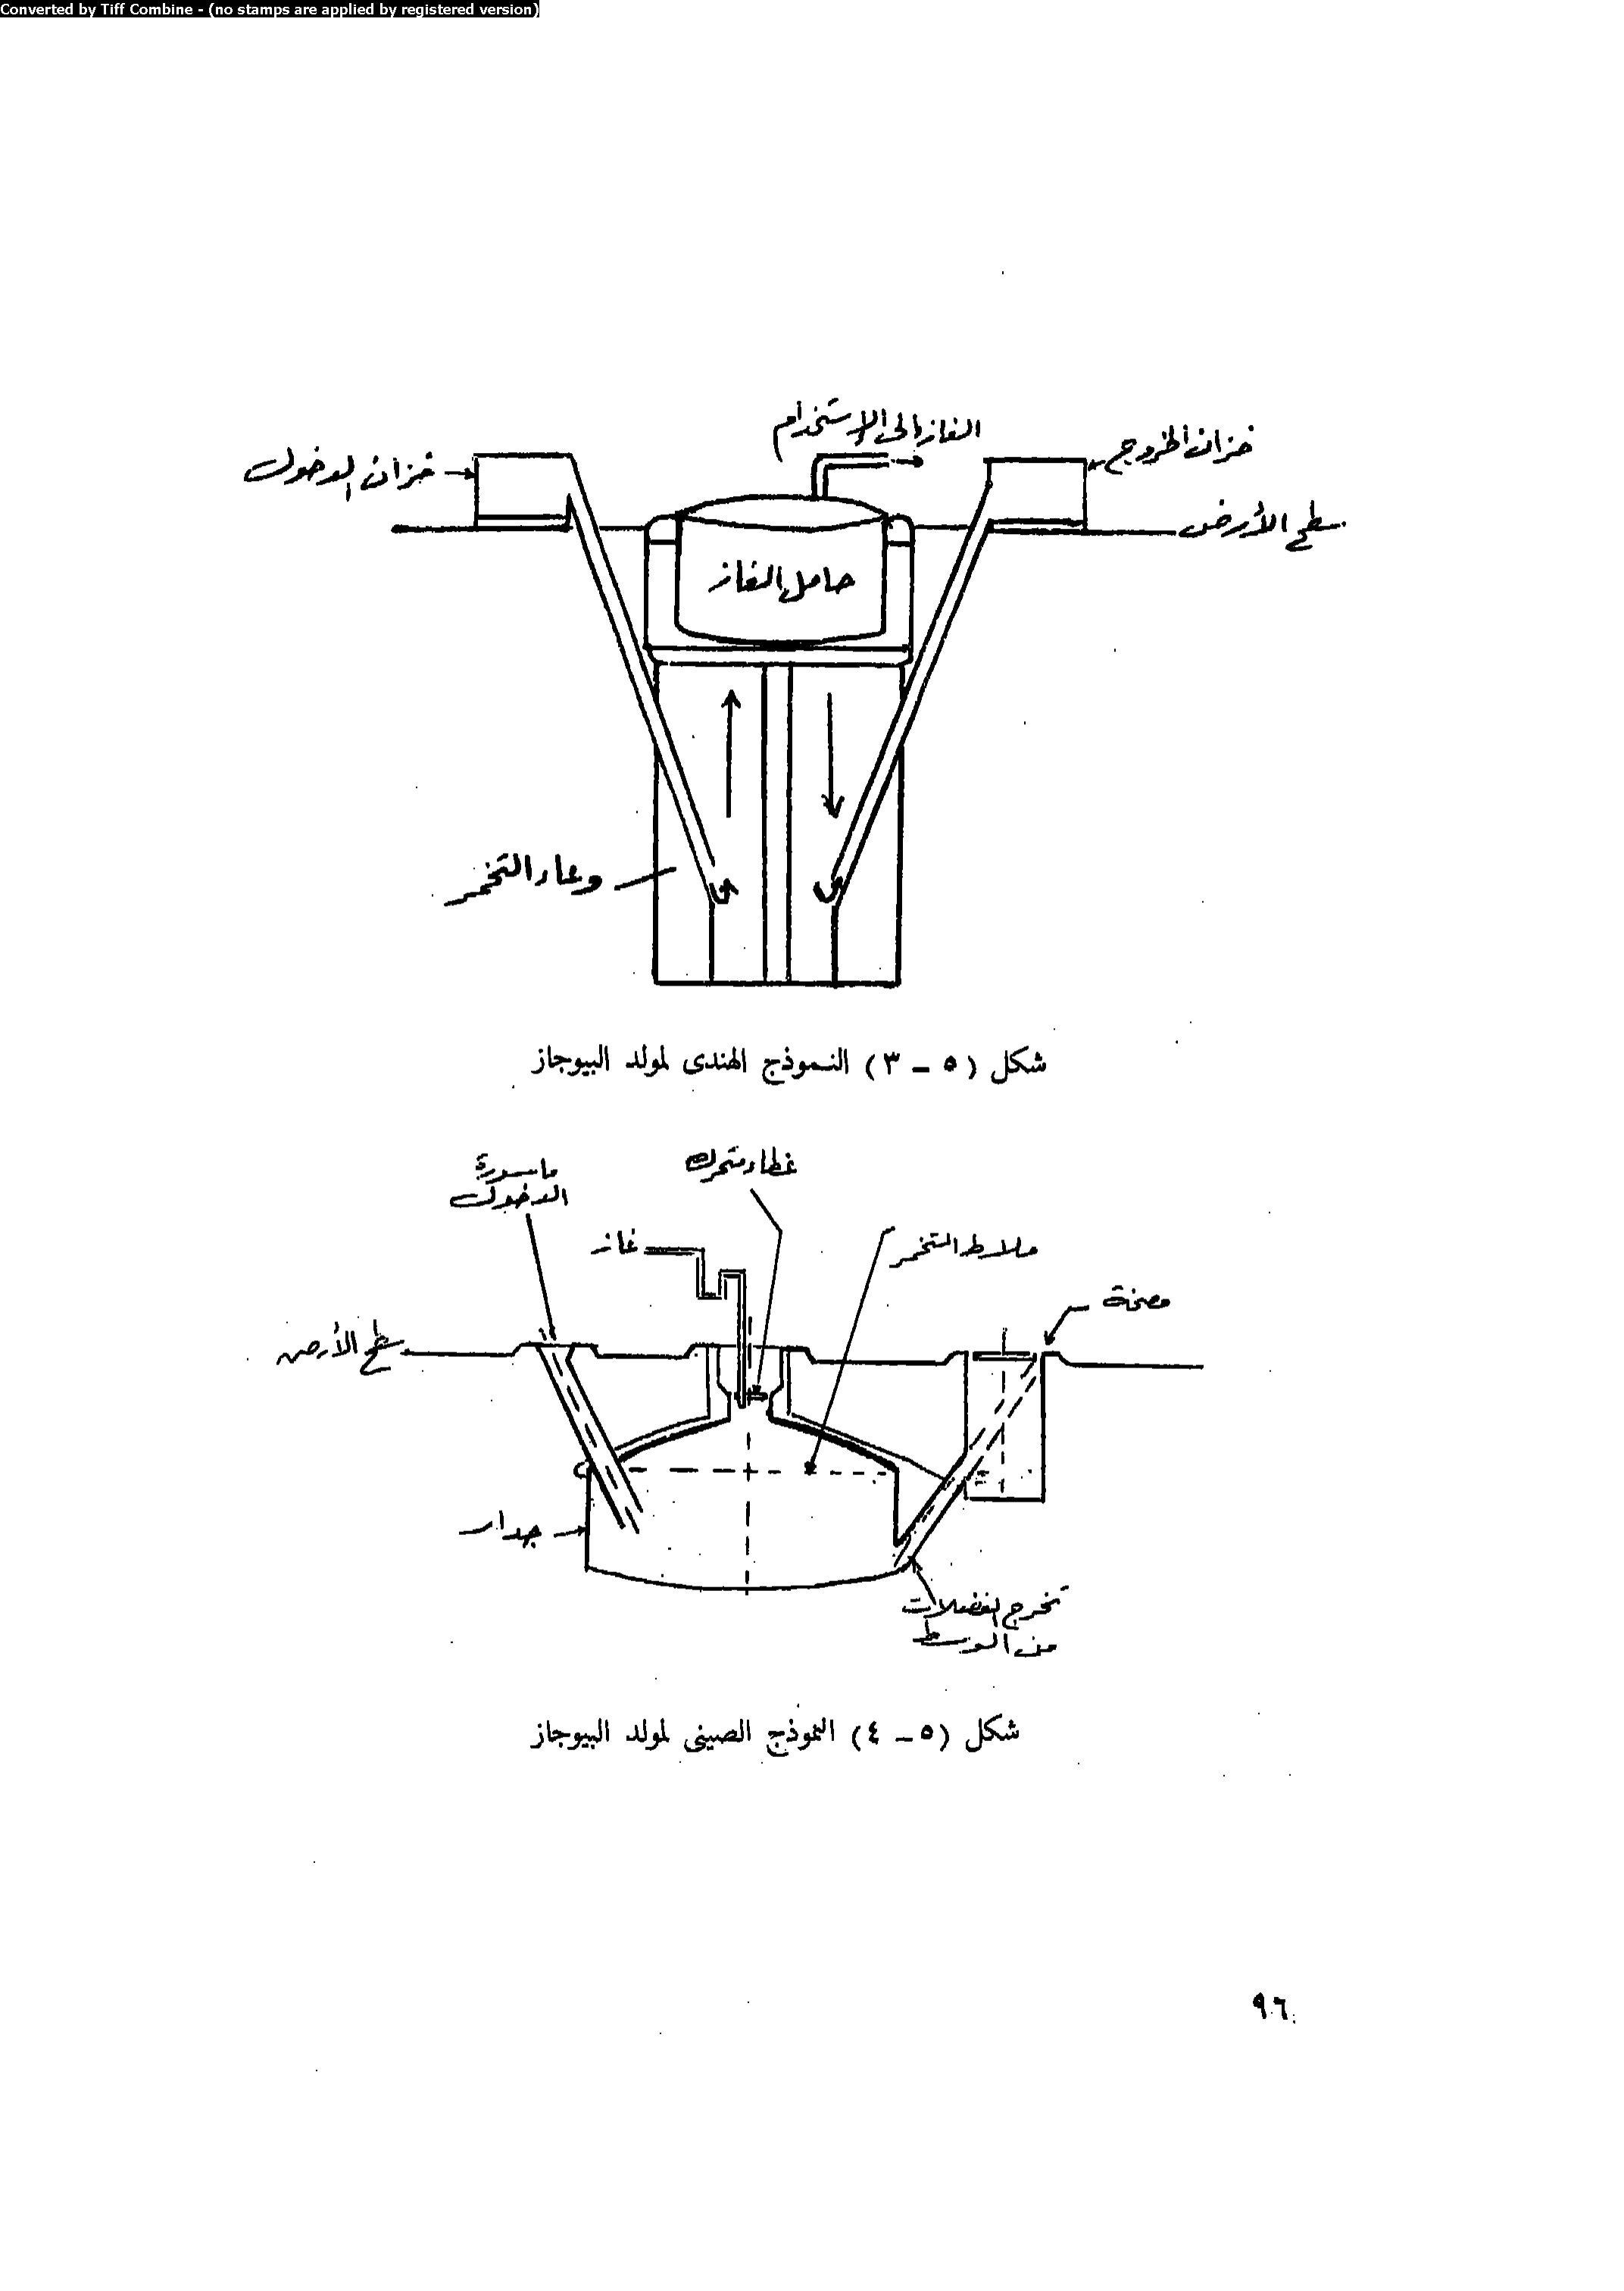 Converted by Tiff Combine - (no stamps are applied by registered version)
الغاز إلى الإستخدام
خزان الخروج
خزان الدخول
سطح الأرض
حامل الغاز
وعاء التخمر
شكل (٥ – ٣) النموذج الهندى لمولد البيوجاز
ماسورة
الدخول
غطاء متحرك
غاز
ملاط التخمر
مضخة
سطح الأرض
جدار
تخرج الفضلات
من الوسط
شكل (٥ – ٤) النموذج الصينى لمولد البيوجاز
٩٦